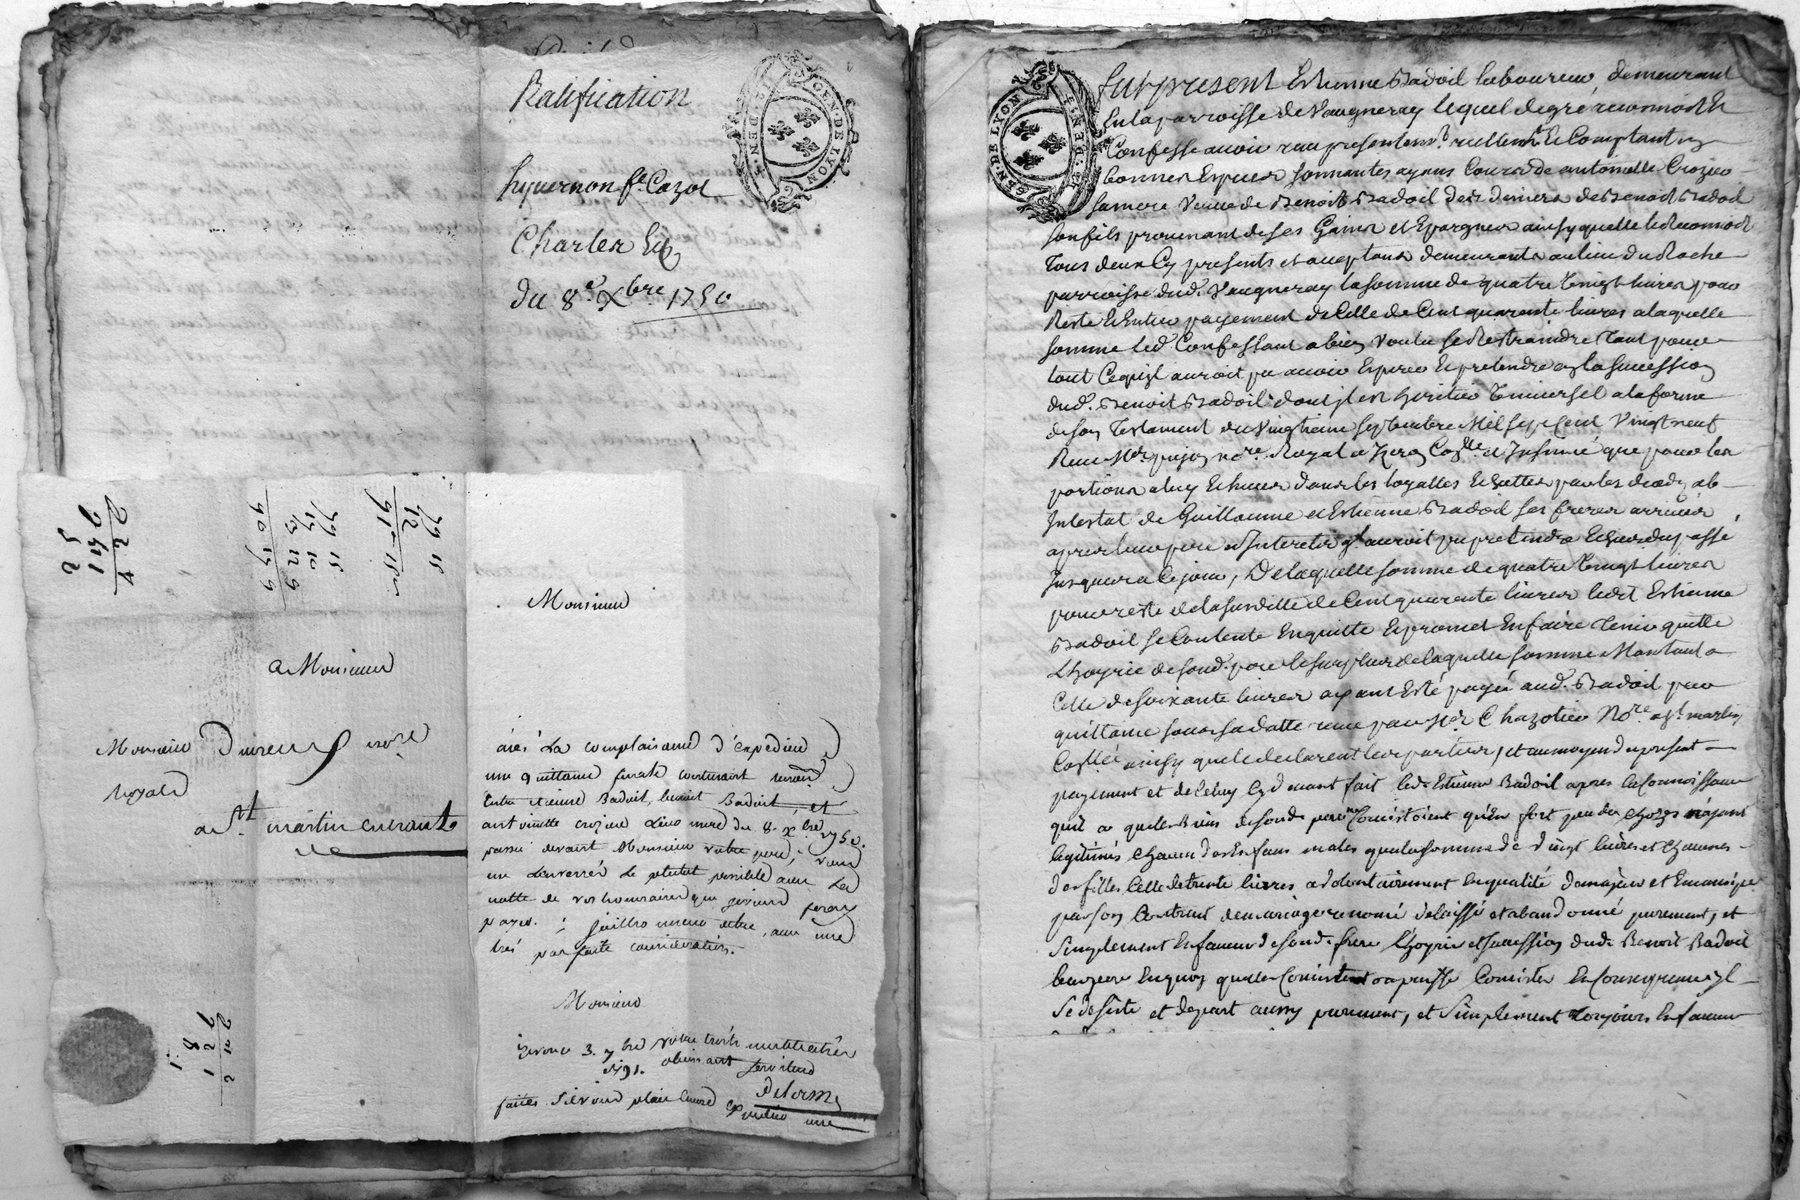 Ratification
hyvernon fe Cazot
Charles
du 8e Xbre 1750
GEN · DE · LYON
79 15
12
91 15
a Monsieur
Monsieur Dutreuf
royale
a St martin
Monsieur
aiés La complaisance d'expedier
une quittance finale contenant
Entre etienne Badoit, benoit Badoit, et
antoinette crozier Leur mere du 8. Xbre 1750.
passé devant Monsieur votre pere, vous
m'obligerés Le plutot possible avec La
notte de vos honnoraires que je vous feray
payer
tres parfaite consideration.
Monsieur
3. 7bre votre tres humble et tres
1791. obeissant serviteur
Delorme
faites S'il vous plait
GEN · DE · LYON
Fut present Estienne Badoil laboureur demeurant
En la parroisse de Vaugneray lequel de gré reconnoist Et
Confesse avoir receu presentemt. reellemt. Et Comptant en
bonnes Especes sonnantes ayans Cours de antoinette Crozier
sa mere veuve de Benoit Badoil des deniers de Benoit Badoil
son fils provenant de ses Gains et Epargnes ainsy quelle le Reconnoit
Tous deux Cy presents et acceptans demeurants au lieu du Rache
parroisse dud. Vaugneray la somme de quatre Vingt livres pour
Reste Et Entier payement de Celle de Cent quarante livres a laquelle
somme led. Confessant a bien Voulu se Restraindre Tant pour
tout Ce qu'il auroit pu avoir Esperer Et pretendre en la succession
dud. Benoit Badoil dont il est heritier Universel a la forme
de son Testament du Vingtieme septembre Mil sept Cent Vingt neuf
Receu Me. pujon nore. Royal a Izeron Coll. et Insinué que pour les
portions a luy Echues dans les loyattes Et dettes par les decedz ab
Intestat de Guillaume et Estienne Badoil ses freres arrivés
apres leur pere et Interets qu'il auroit pu pretendre Et Ceux du passé
Jusques a Ce jour, De laquelle somme de quatre Vingt livres
pour reste de la susditte de Cent quarante livres ledit Estienne
Badoil se Contente En quitte Et promet En faire Tenir quitte
L'hoyrie de soud. pere le surplus de laquelle somme Montant a
Celle de soixante livres ayant Esté payée aud. Badoil par
quittance sous sa datte receue par Me. Chazotier Nore a st martin
ainsy que le declarent les parties, et au moyen du present
payement et de Celuy Cy devant fait led. Etienne Badoil apres la Connoissance
qu'il a que les Biens de soud. pere Consistoient qu'en fort peu de choses n'ayant
legitimés chacun des Enfans males que la somme de Vingt livres et chacunes
des filles Celle de trente livres a volontairement En qualité de majeur et Emancipé
par son Contrat de mariage renoncé delaissé et abandonné purement, et
Simplement En faveur de soud. frere l'hoyrie et succession dud. Benoit Badoit
leur pere En quoy quelle Consiste ou puisse Consister En Consequence il
Se desiste et depart aussy purement, et Simplement toujours En faveur